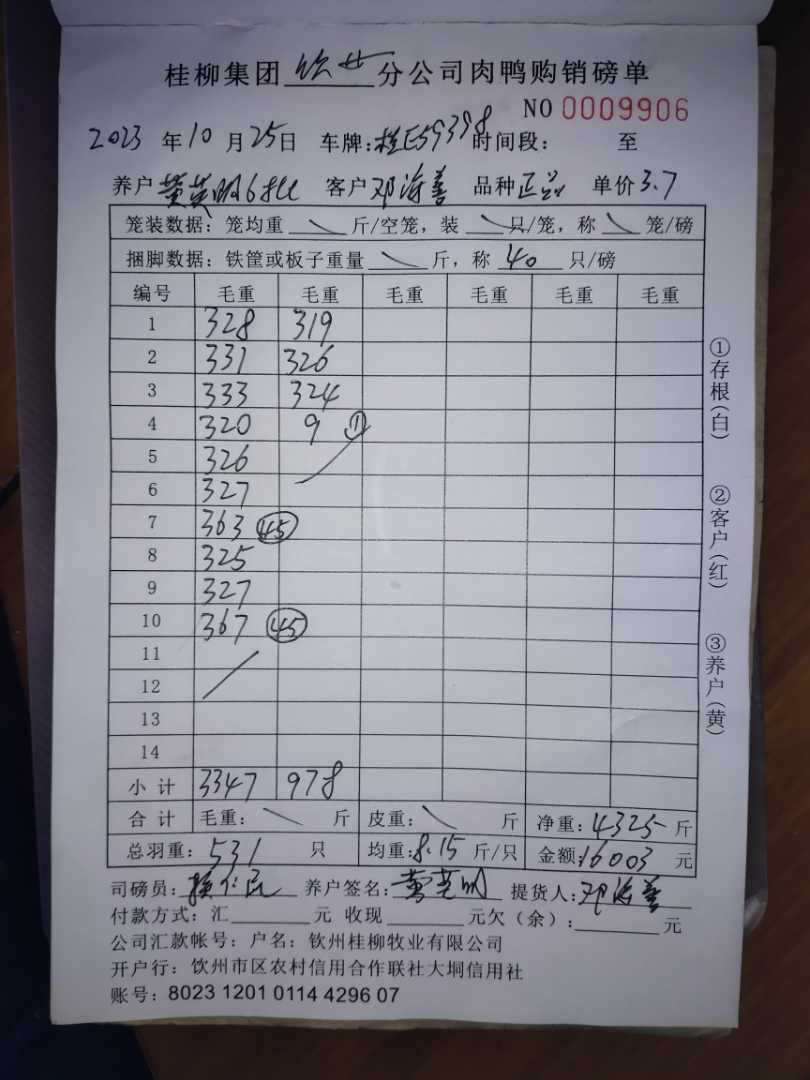 桂柳集团 钦州 分公司肉鸭购销磅单
NO 0009906
2023 年 10 月 25 日 车牌:桂E59398 时间段: 至
养户 黄英明6批 客户 邓海善 品种 正品 单价 3.7
笼装数据: 笼均重 \ 斤/空笼, 装 \ 只/笼, 称 \ 笼/磅
捆脚数据: 铁筐或板子重量 \ 斤, 称 40 只/磅
编号 毛重 毛重 毛重 毛重 毛重 毛重
1 328 319
2 331 326
3 333 324
4 320 9 ①
5 326
6 327
7 363 45
8 325
9 327
10 367 45
11
12
13
14
小计 3347 978
合计 毛重: \ 斤 皮重: \ 斤 净重: 4325 斤
总羽重: 531 只 均重: 8.15 斤/只 金额: 16003 元
司磅员: 养户签名: 黄英明 提货人: 邓海善
付款方式: 汇 元 收现 元欠(余): 元
公司汇款帐号: 户名: 钦州桂柳牧业有限公司
开户行: 钦州市区农村信用合作联社大垌信用社
账号: 8023 1201 0114 4296 07
①存根(白)
②客户(红)
③养户(黄)